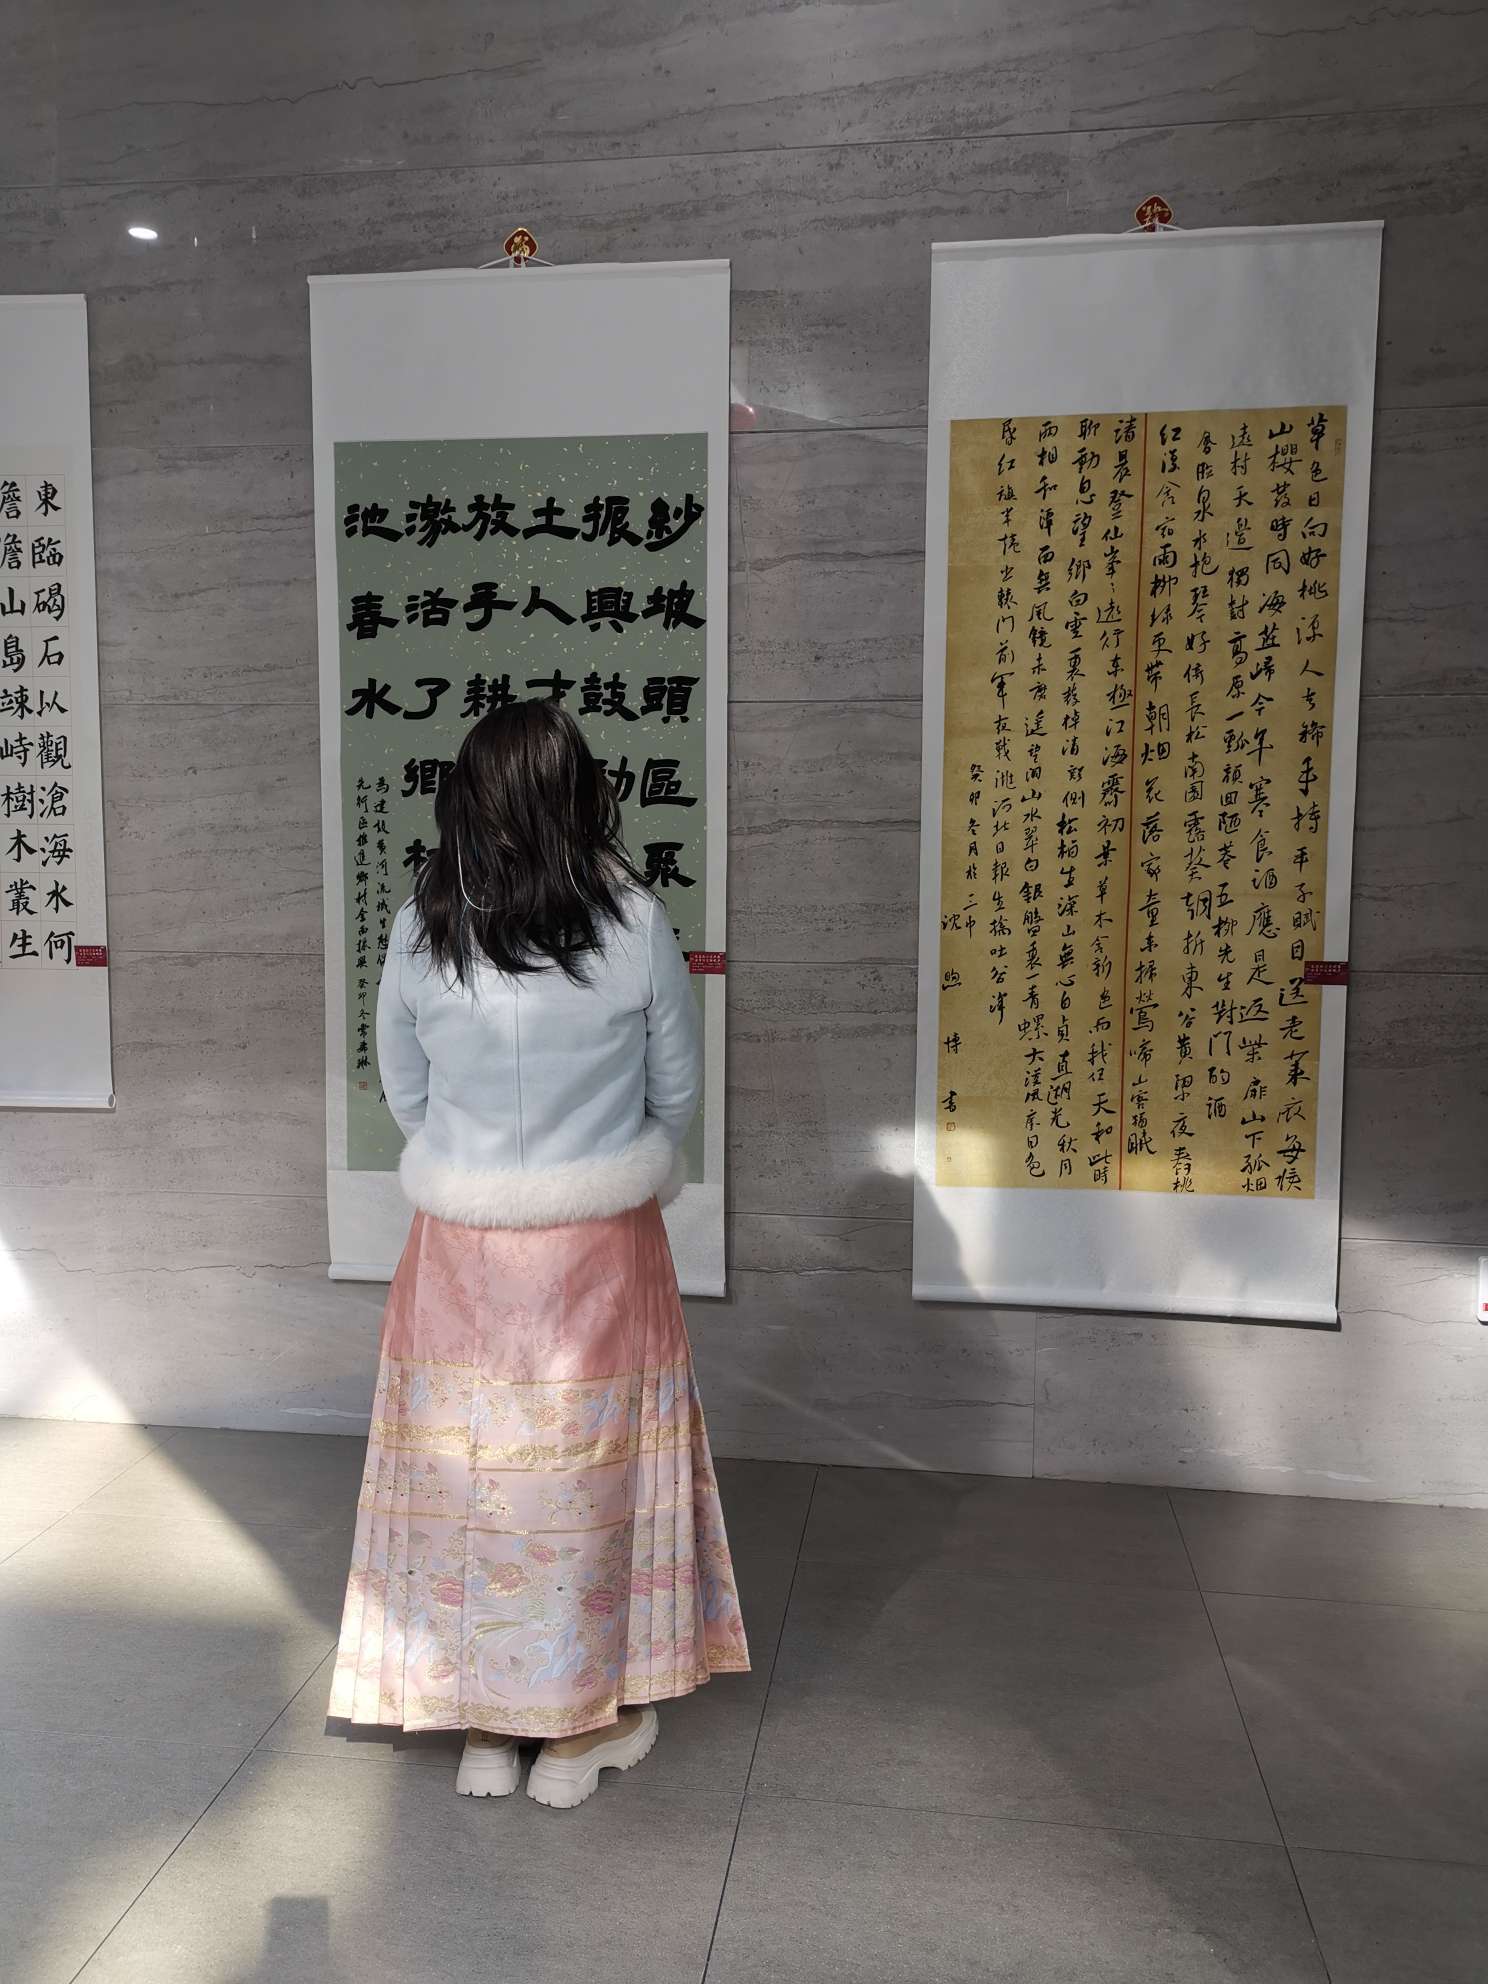 東臨碣石以觀滄海水何
澹澹山島竦峙樹木叢生
紗坡頭區聚
振興鼓動
土人才
放手耕
激活了鄉村
池春水
為建設黃河流域生態
先行區推進鄉村全面振興 癸卯冬常弗琳
草色日向好桃源人去稀手持平子賦目送老萊衣每候
山櫻發時同海燕歸今年寒食酒應是返柴扉山下孤烟
遠村天邊獨樹高原一瓢顏回陋巷五柳先生對門酌酒
會臨泉水抱琴好倚長松南園露葵朝折東谷黃粱夜舂桃
紅復含宿雨柳綠更帶朝烟花落家童未掃鶯啼山客猶眠
清晨登仙峯〻遠行未極江海霽初景草木含新色而我任天和此時
聊動息望鄉白雲裏發棹清溪側松柏生深山無心自貞直湖光秋月
兩相和潭面無風鏡未磨遙望洞山水翠白銀盤裏一青螺大漠風塵日色
昏紅旗半捲出轅門前軍夜戰洮河北已報生擒吐谷渾
癸卯冬月於三中
沈煦博書